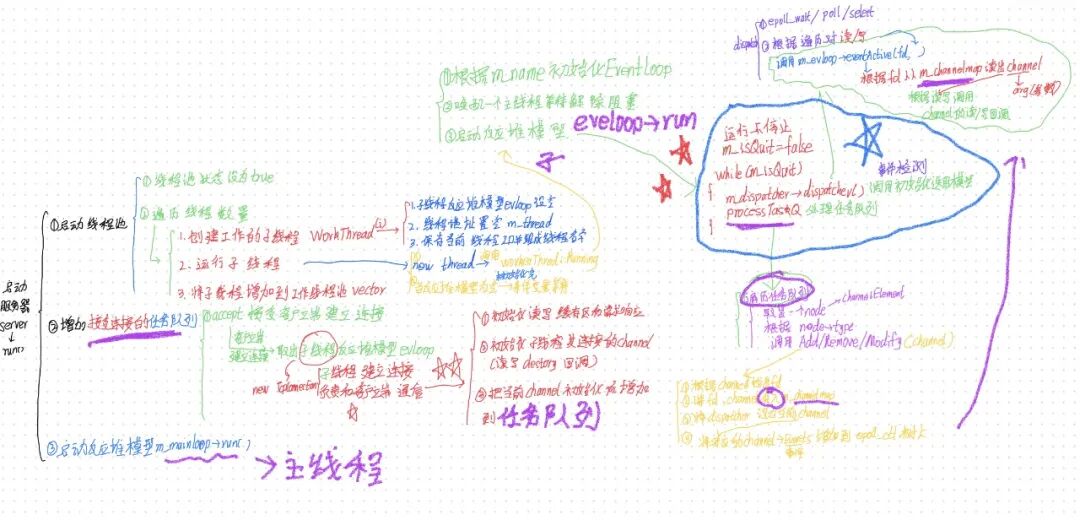 启动
服务器
server
run()
①启动线程池
①线程池状态设为true
②遍历线程数量
1.创建工作的子线程 WorkThread
1.子线程反应堆模型evloop设空
2.线程地址置空 m_thread
3.保存当前线程ID并组成线程名字
2.运行子线程
new thread
调用
workerThread::Running
3.将子线程增加到工作线程池vector
①根据m_name初始化EventLoop
②唤醒一个主线程条件解除阻塞
③启动反应堆模型 eveloop→run
子
②增加接受连接的任务队列
①accept 接受客户端建立连接
客户端
建立连接→取出子线程反应堆模型evloop
子线程建立连接
new TcpConnection
负责和客户端通信
①初始化读写缓存区和请求响应
②初始化子线程其连接的channel
(读写 dectory 回调)
③把当前channel初始化及增加
到任务队列
③启动反应堆模型m_mainloop→run()
→主线程
dispatch
①epoll_wait/poll/select
②根据遍历对读/写
调用m_evloop→eventActive(fd, )
根据fd从m_channelmap读出channel
根据读写调用
channel的读/写回调
arg
运行与停止
m_isQuit=false
while(m_isQuit)
{
事件检测
m_dispatcher→dispatcher()
调用初始化选取模型
processTaskQ 处理任务队列
}
①遍历任务队列
取出一node
channelElement
根据node→type
调用 Add/Remove/Modify(channel)
①根据channel
m_channelmap
channel